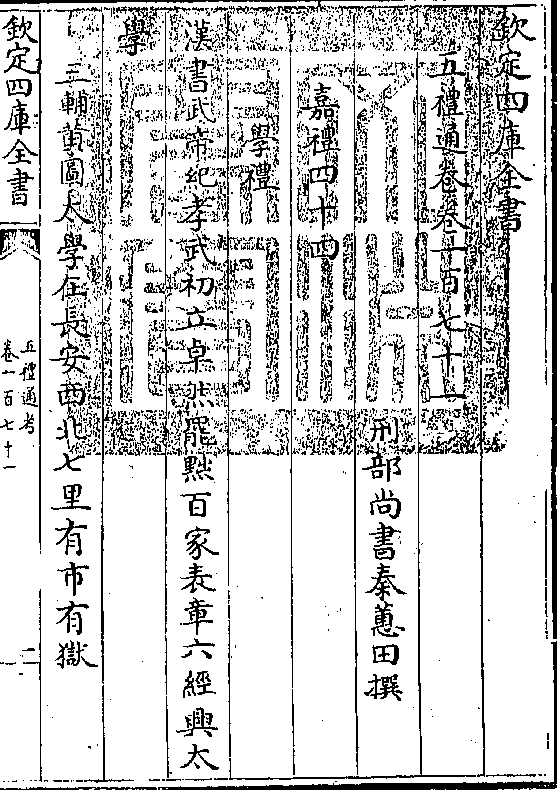 欽定四庫全書
五禮通卷卷一百七十一
刑部尚書秦蕙田撰
嘉禮四十四
學禮
漢書武帝紀孝武初立卓然罷黜百家表章六經興太
學
三輔黄圖太學在長安西北七里有市有獄
欽定四庫全書
五禮通考
卷一百七十一